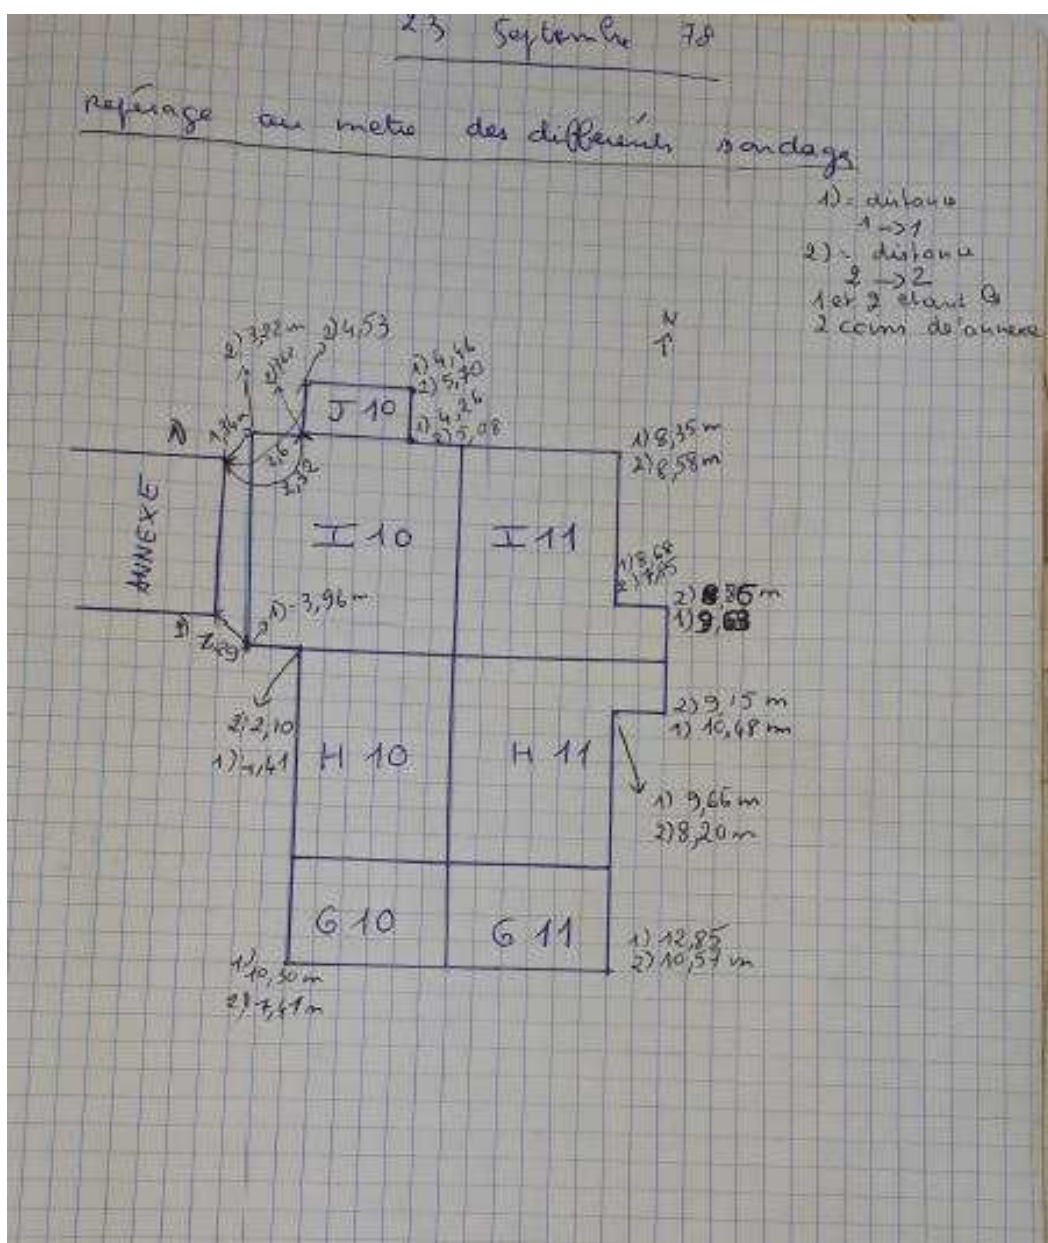 23 Septembre 78
repérage au metre des différents sondages
1) = distance
1 -> 1
2) = distance
2 -> 2
1 et 2 étant les
2 coins de annexe
N
2) 3,22 m
2) 4,53
1) 4,46
2) 5,70
J 10
1) 4,26
2) 5,08
1) 8,35 m
2) 8,58 m
1)
2,32
ANNEXE
I 10
I 11
1) 8,68
2) 7,15
2) 8,86 m
1) 9,63
1) 3,96 m
2)
2) 2,10
2) 9,15 m
1) 10,48 m
H 10
H 11
1) 9,66 m
2) 8,20 m
G 10
G 11
1) 12,85
2) 10,57 m
1) 10,30 m
2) 7,41 m